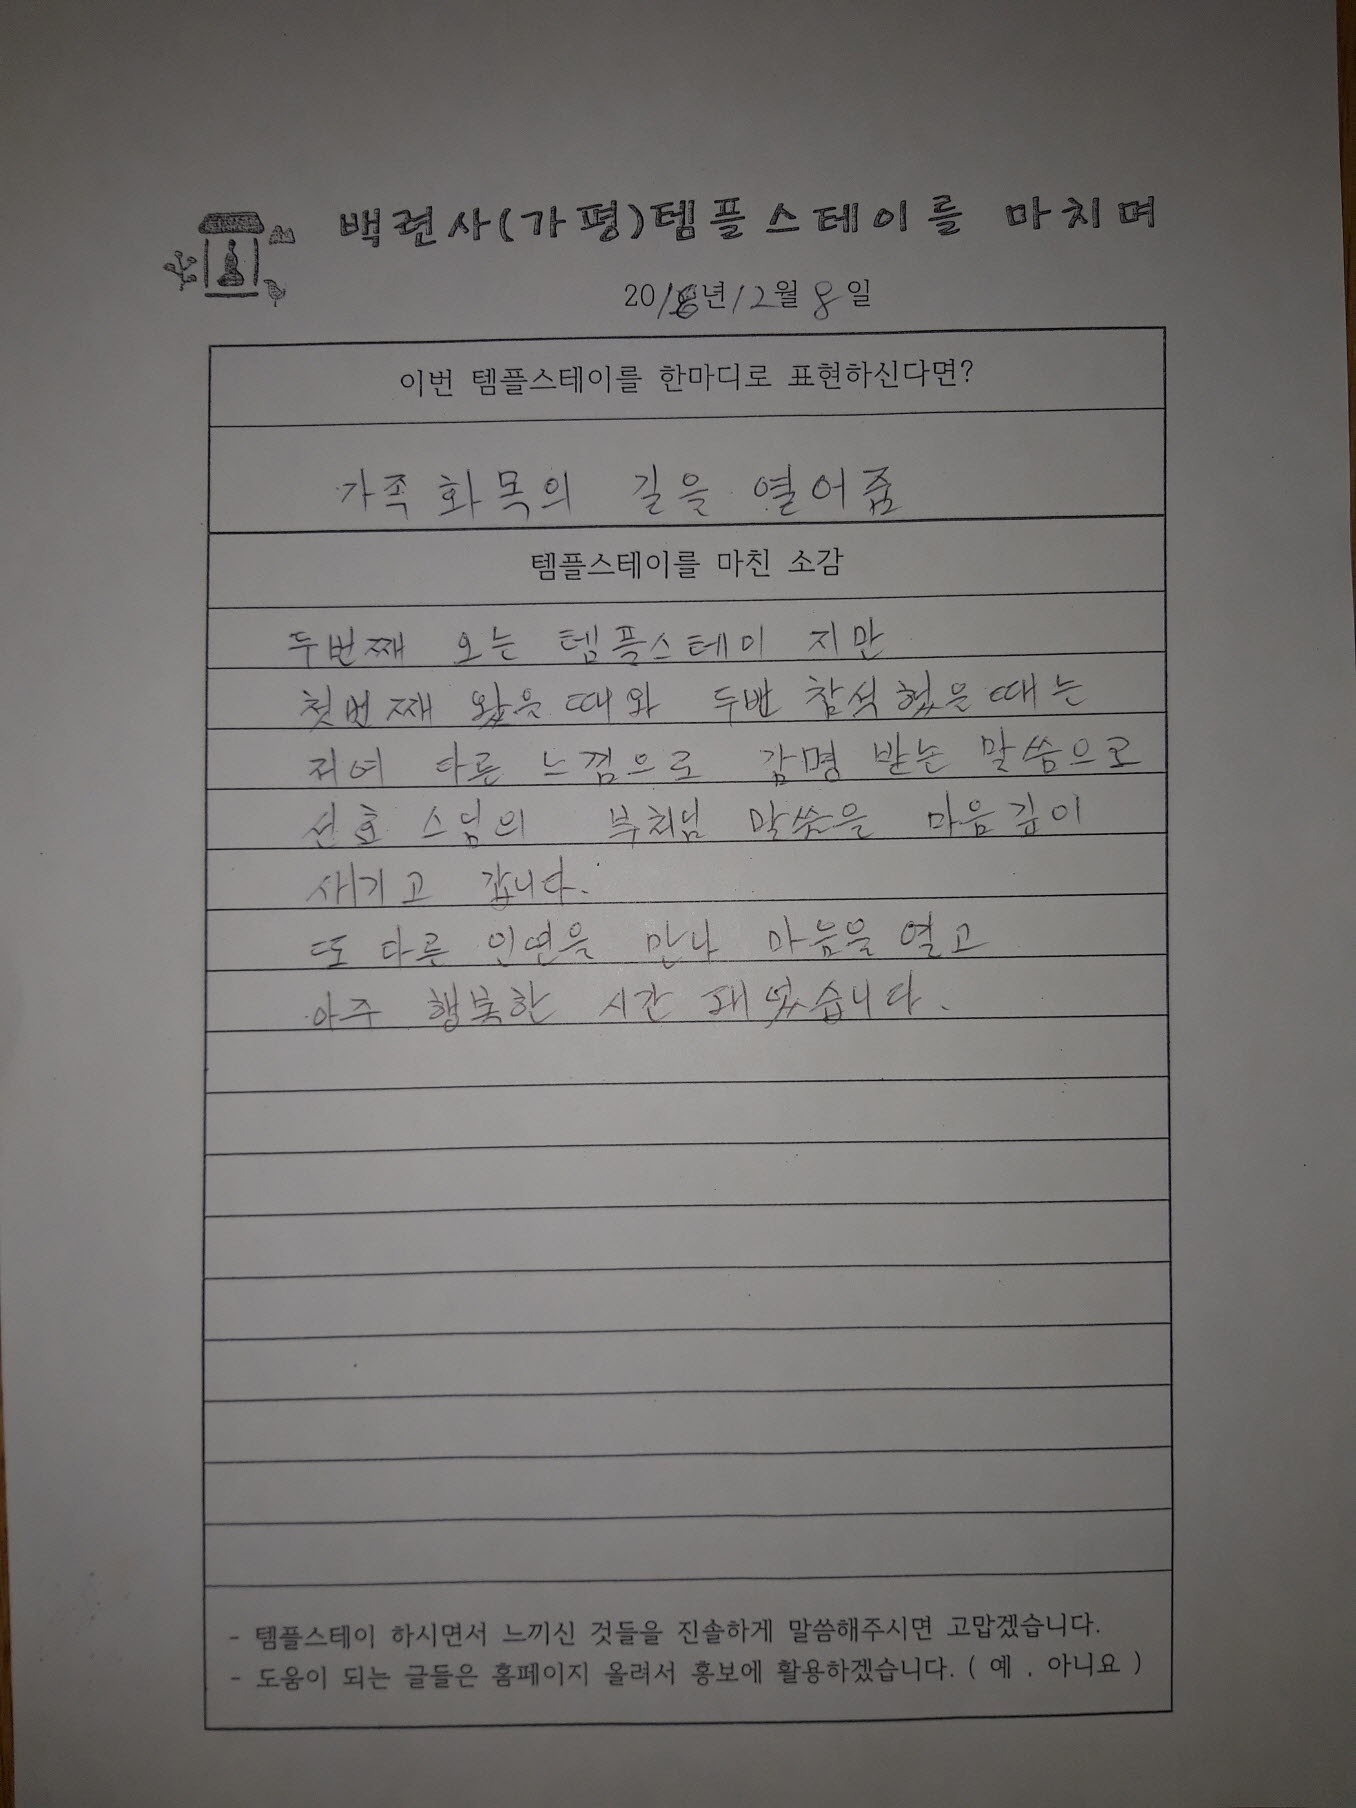 백련사(가평)템플스테이를 마치며
20 년 12월 8일
이번 템플스테이를 한마디로 표현하신다면?
가족 화목의 길을 열어줌
템플스테이를 마친 소감
두번째 오는 템플스테이 지만
첫번째 왔을때와 두번 참석했을때는
저여 다른 느낌으로 감명 받는 말씀으로
선효 스님의 부처님 말씀을 마음깊이
새기고 갑니다.
또 다른 인연을 만나 마음을 열고
아주 행복한 시간 돼었습니다.
- 템플스테이 하시면서 느끼신 것들을 진솔하게 말씀해주시면 고맙겠습니다.
- 도움이 되는 글들은 홈페이지 올려서 홍보에 활용하겠습니다. ( 예 , 아니요 )